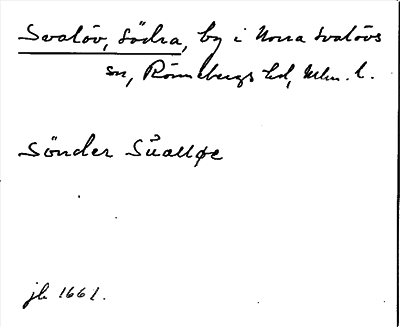 Svalöv, Södra, by i Norra Svalövs
sn, Rönnebergs hd, Mlm. l.
Sönder Sualløe
jb 1661.